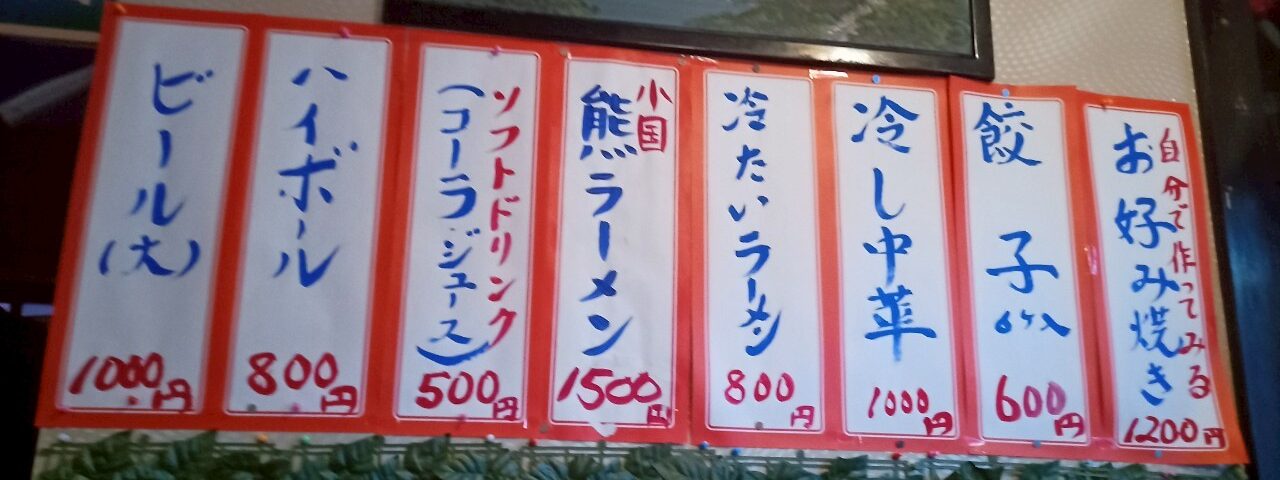 自分で作ってみる
お好み焼き
1200円
餃子6ケ入
600円
冷し中華
1000円
冷たいラーメン
800円
小国
熊ラーメン
1500円
ソフトドリンク
(コーラジュース)
500円
ハイボール
800円
ビール(大)
1000円